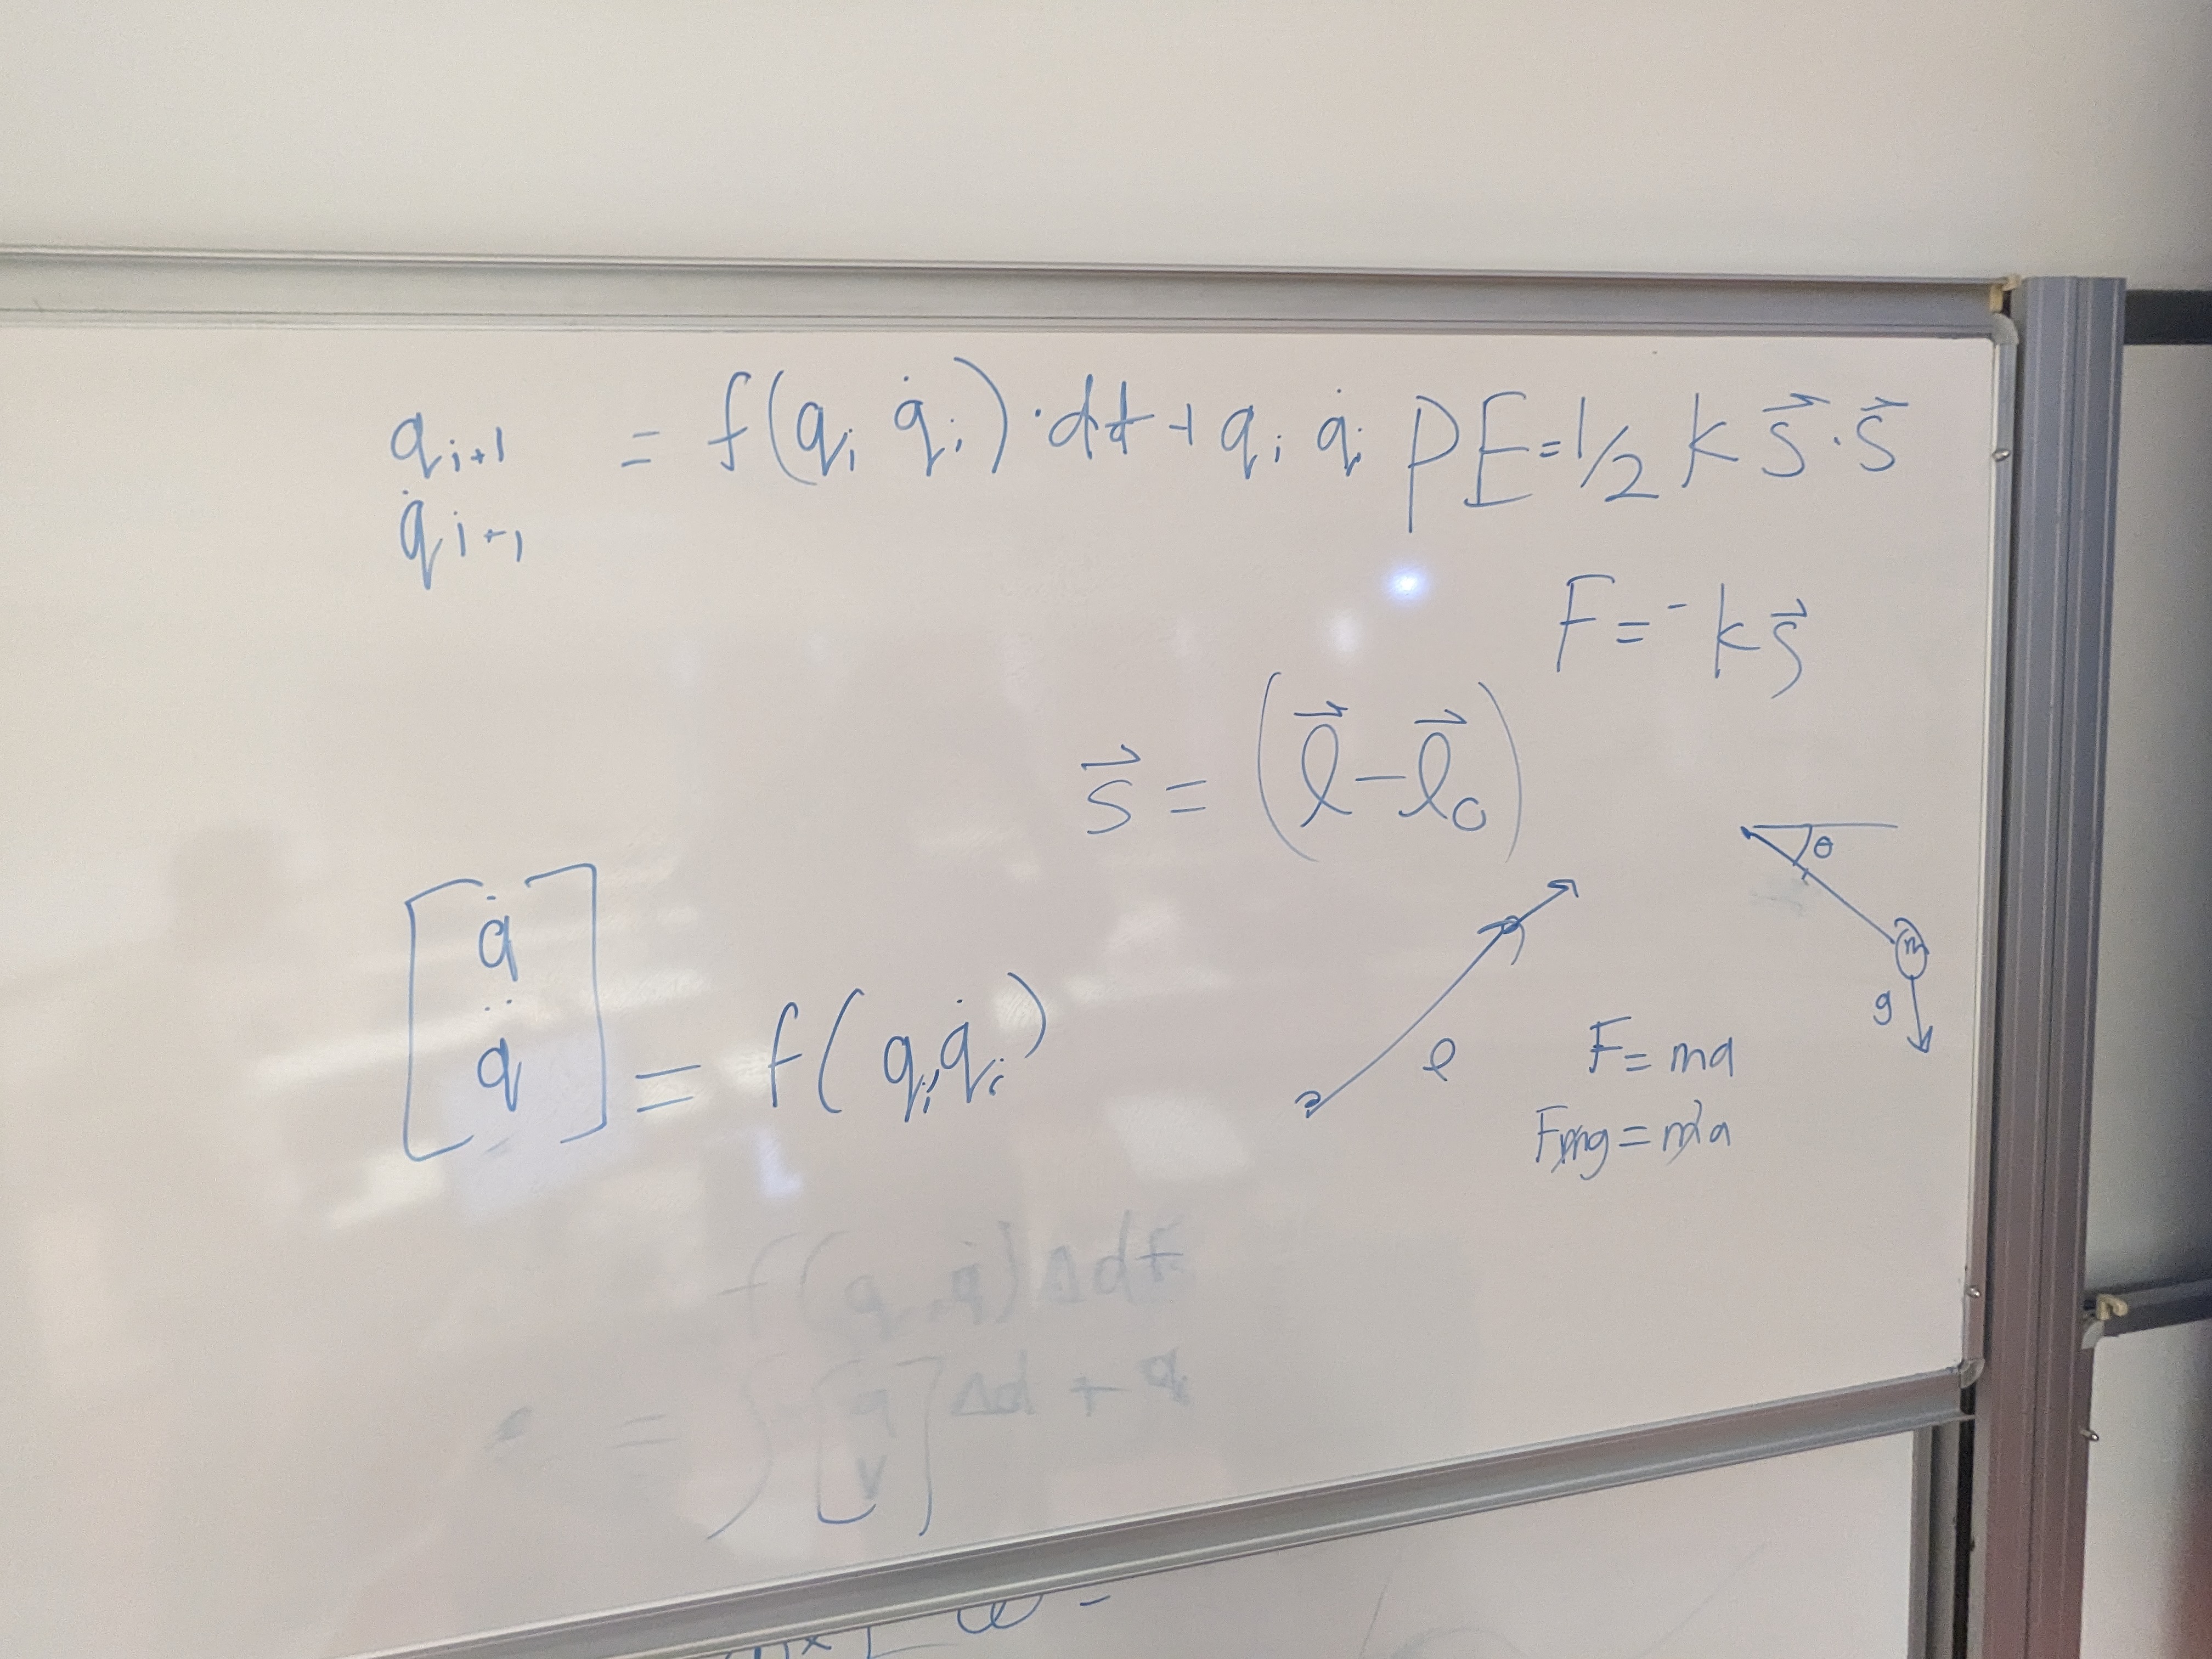 q̇ᵢ₊₁ = f(qᵢ q̇ᵢ)·dt + qᵢ q̇ᵢ
q̇ᵢ₊₁
PE = 1/2 k s⃗·s⃗
F = -k s⃗
s⃗ = (l⃗ - l⃗₀)
θ
m
g
[q̇
q̈] = f(qᵢ, q̇ᵢ)
l
F = ma
f(q, q̇) Δdt
= [q
v] Δd + q